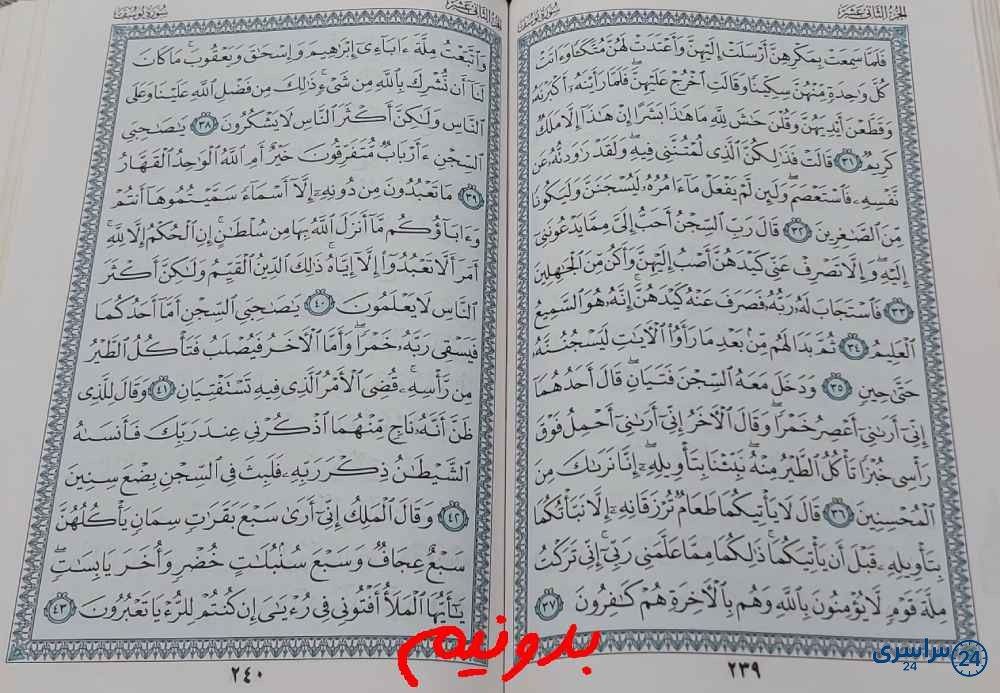 الجزء الثاني عشر
سورة يوسف
فَلَمَّا سَمِعَتْ بِمَكْرِهِنَّ أَرْسَلَتْ إِلَيْهِنَّ وَأَعْتَدَتْ لَهُنَّ مُتَّكَـًٔا وَءَاتَتْ
كُلَّ وَٰحِدَةٍ مِّنْهُنَّ سِكِّينًا وَقَالَتِ ٱخْرُجْ عَلَيْهِنَّ ۖ فَلَمَّا رَأَيْنَهُۥٓ أَكْبَرْنَهُۥ
وَقَطَّعْنَ أَيْدِيَهُنَّ وَقُلْنَ حَٰشَ لِلَّهِ مَا هَٰذَا بَشَرًا إِنْ هَٰذَآ إِلَّا مَلَكٌ
كَرِيمٌ ٣١ قَالَتْ فَذَٰلِكُنَّ ٱلَّذِى لُمْتُنَّنِى فِيهِ ۖ وَلَقَدْ رَٰوَدتُّهُۥ عَن
نَّفْسِهِۦ فَٱسْتَعْصَمَ ۖ وَلَئِن لَّمْ يَفْعَلْ مَآ ءَامُرُهُۥ لَيُسْجَنَنَّ وَلَيَكُونًا
مِّنَ ٱلصَّٰغِرِينَ ٣٢ قَالَ رَبِّ ٱلسِّجْنُ أَحَبُّ إِلَىَّ مِمَّا يَدْعُونَنِىٓ
إِلَيْهِ ۖ وَإِلَّا تَصْرِفْ عَنِّى كَيْدَهُنَّ أَصْبُ إِلَيْهِنَّ وَأَكُن مِّنَ ٱلْجَٰهِلِينَ
٣٣ فَٱسْتَجَابَ لَهُۥ رَبُّهُۥ فَصَرَفَ عَنْهُ كَيْدَهُنَّ ۚ إِنَّهُۥ هُوَ ٱلسَّمِيعُ
ٱلْعَلِيمُ ٣٤ ثُمَّ بَدَا لَهُم مِّنۢ بَعْدِ مَا رَأَوُا۟ ٱلْءَايَٰتِ لَيَسْجُنُنَّهُۥ
حَتَّىٰ حِينٍ ٣٥ وَدَخَلَ مَعَهُ ٱلسِّجْنَ فَتَيَانِ ۖ قَالَ أَحَدُهُمَآ
إِنِّىٓ أَرَىٰنِىٓ أَعْصِرُ خَمْرًا ۖ وَقَالَ ٱلْءَاخَرُ إِنِّىٓ أَرَىٰنِىٓ أَحْمِلُ فَوْقَ
رَأْسِى خُبْزًا تَأْكُلُ ٱلطَّيْرُ مِنْهُ ۖ نَبِّئْنَا بِتَأْوِيلِهِۦٓ ۖ إِنَّا نَرَىٰكَ مِنَ
ٱلْمُحْسِنِينَ ٣٦ قَالَ لَا يَأْتِيكُمَا طَعَامٌ تُرْزَقَانِهِۦٓ إِلَّا نَبَّأْتُكُمَا
بِتَأْوِيلِهِۦ قَبْلَ أَن يَأْتِيَكُمَا ۚ ذَٰلِكُمَا مِمَّا عَلَّمَنِى رَبِّىٓ ۚ إِنِّى تَرَكْتُ
مِلَّةَ قَوْمٍ لَّا يُؤْمِنُونَ بِٱللَّهِ وَهُم بِٱلْءَاخِرَةِ هُمْ كَٰفِرُونَ ٣٧
٢٣٩
الجزء الثاني عشر
سورة يوسف
وَٱتَّبَعْتُ مِلَّةَ ءَابَآءِىٓ إِبْرَٰهِيمَ وَإِسْحَٰقَ وَيَعْقُوبَ ۚ مَا كَانَ
لَنَآ أَن نُّشْرِكَ بِٱللَّهِ مِن شَىْءٍ ۚ ذَٰلِكَ مِن فَضْلِ ٱللَّهِ عَلَيْنَا وَعَلَى
ٱلنَّاسِ وَلَٰكِنَّ أَكْثَرَ ٱلنَّاسِ لَا يَشْكُرُونَ ٣٨ يَٰصَٰحِبَىِ
ٱلسِّجْنِ ءَأَرْبَابٌ مُّتَفَرِّقُونَ خَيْرٌ أَمِ ٱللَّهُ ٱلْوَٰحِدُ ٱلْقَهَّارُ
٣٩ مَا تَعْبُدُونَ مِن دُونِهِۦٓ إِلَّآ أَسْمَآءً سَمَّيْتُمُوهَآ أَنتُمْ
وَءَابَآؤُكُم مَّآ أَنزَلَ ٱللَّهُ بِهَا مِن سُلْطَٰنٍ ۚ إِنِ ٱلْحُكْمُ إِلَّا لِلَّهِ ۚ
أَمَرَ أَلَّا تَعْبُدُوٓا۟ إِلَّآ إِيَّاهُ ۚ ذَٰلِكَ ٱلدِّينُ ٱلْقَيِّمُ وَلَٰكِنَّ أَكْثَرَ
ٱلنَّاسِ لَا يَعْلَمُونَ ٤٠ يَٰصَٰحِبَىِ ٱلسِّجْنِ أَمَّآ أَحَدُكُمَا
فَيَسْقِى رَبَّهُۥ خَمْرًا ۖ وَأَمَّا ٱلْءَاخَرُ فَيُصْلَبُ فَتَأْكُلُ ٱلطَّيْرُ
مِن رَّأْسِهِۦ ۚ قُضِىَ ٱلْأَمْرُ ٱلَّذِى فِيهِ تَسْتَفْتِيَانِ ٤١ وَقَالَ لِلَّذِى
ظَنَّ أَنَّهُۥ نَاجٍ مِّنْهُمَا ٱذْكُرْنِى عِندَ رَبِّكَ فَأَنسَىٰهُ
ٱلشَّيْطَٰنُ ذِكْرَ رَبِّهِۦ فَلَبِثَ فِى ٱلسِّجْنِ بِضْعَ سِنِينَ
٤٢ وَقَالَ ٱلْمَلِكُ إِنِّىٓ أَرَىٰ سَبْعَ بَقَرَٰتٍ سِمَانٍ يَأْكُلُهُنَّ
سَبْعٌ عِجَافٌ وَسَبْعَ سُنۢبُلَٰتٍ خُضْرٍ وَأُخَرَ يَابِسَٰتٍ ۖ
يَٰٓأَيُّهَا ٱلْمَلَأُ أَفْتُونِى فِى رُءْيَٰىَ إِن كُنتُمْ لِلرُّءْيَا تَعْبُرُونَ ٤٣
٢٤٠
بدونیم
سراسری 24
24